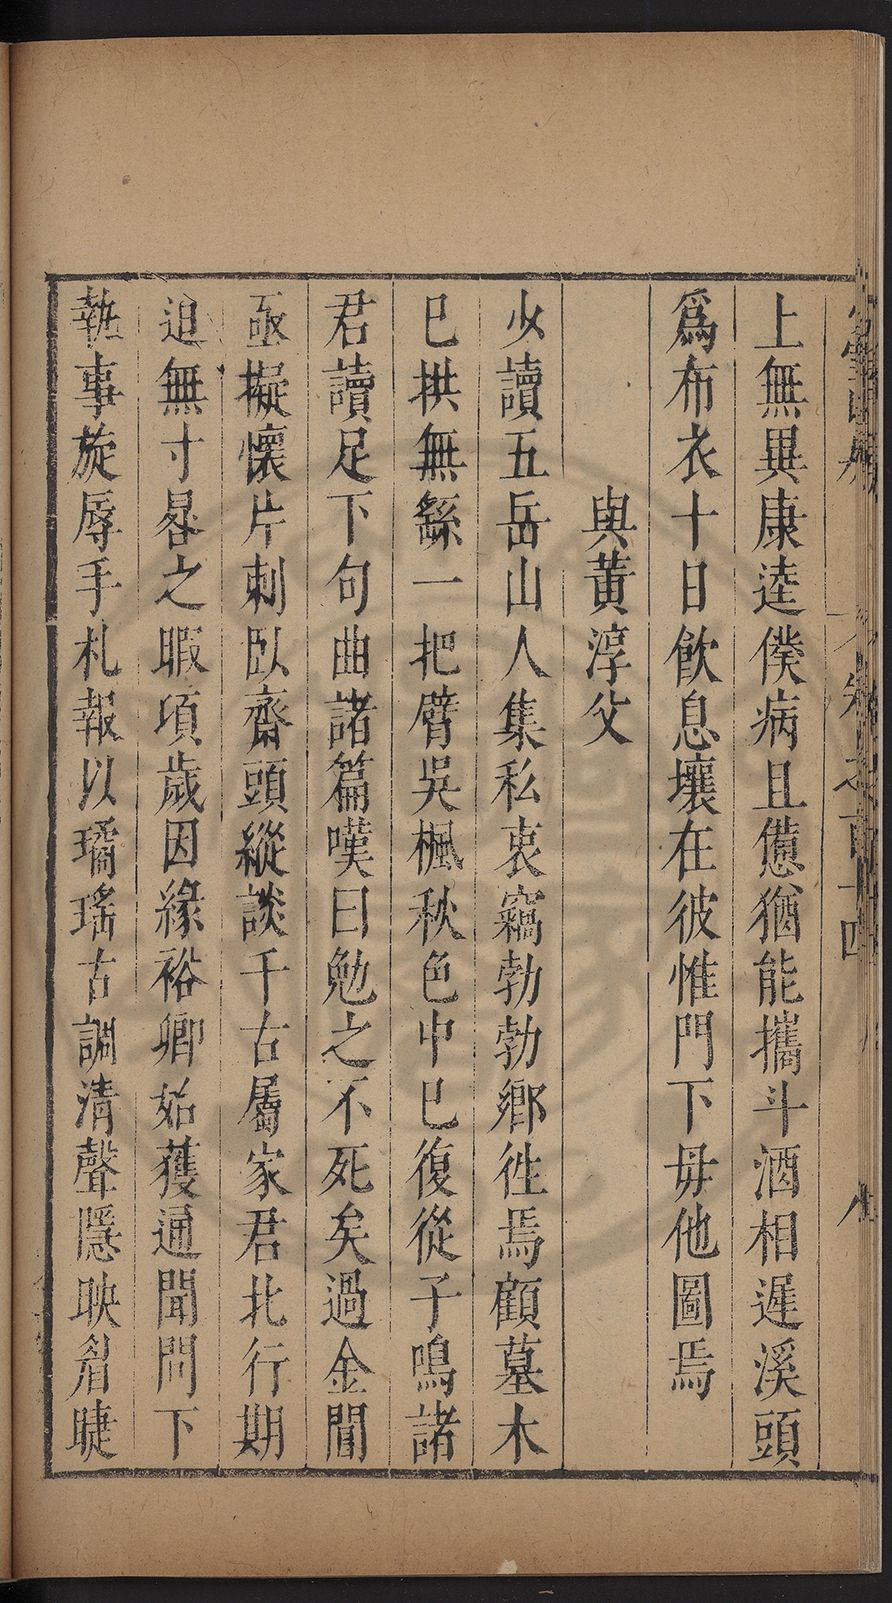 卷之百十四
上無異康逵僕病且憊猶能攜斗酒相遲溪頭
爲布衣十日飲息壤在彼惟門下毋他圖焉
與黃淳父
少讀五岳山人集私衷竊勃勃鄉徃焉顧墓木
已拱無繇一把臂吳楓秋色中已復從子鳴諸
君讀足下句曲諸篇嘆曰勉之不死矣過金閶
亟擬懷片刺臥齋頭縱談千古屬家君北行期
迫無寸晷之暇項歲因緣裕卿始獲通聞問下
執事旋辱手札報以璚瑤古調清聲隱映眉睫